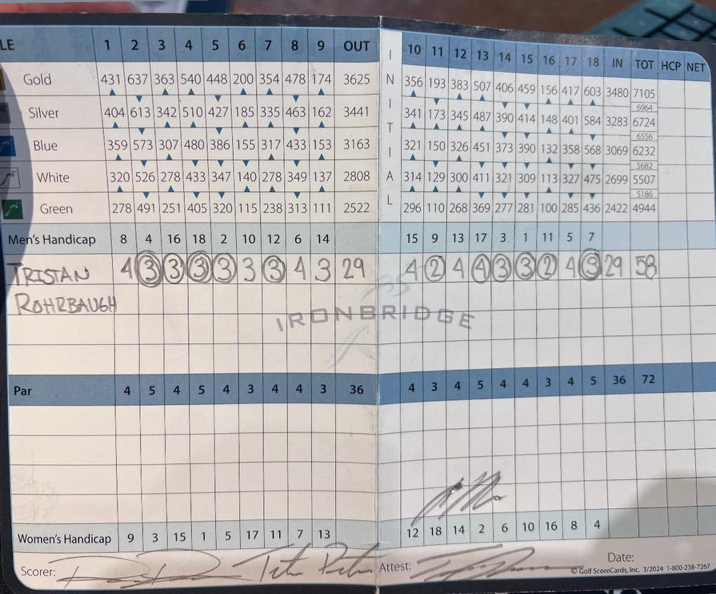 LE 1 2 3 4 5 6 7 8 9 OUT INITIAL 10 11 12 13 14 15 16 17 18 IN TOT HCP NET
Gold 431 637 363 540 448 200 354 478 174 3625 356 193 383 507 406 459 156 417 603 3480 7105
6964
Silver 404 613 342 510 427 185 335 463 162 3441 341 173 345 487 390 414 148 401 584 3283 6724
6556
Blue 359 573 307 480 386 155 317 433 153 3163 321 150 326 451 373 390 132 358 568 3069 6232
5682
White 320 526 278 433 347 140 278 349 137 2808 314 129 300 411 321 309 113 327 475 2699 5507
5186
Green 278 491 251 405 320 115 238 313 111 2522 296 110 268 369 277 281 100 285 436 2422 4944
Men's Handicap 8 4 16 18 2 10 12 6 14 15 9 13 17 3 1 11 5 7
TRISTAN 4 3 3 3 3 3 3 4 3 29 4 2 4 4 3 3 2 4 3 29 58
ROHRBAUGH
IRONBRIDGE
Par 4 5 4 5 4 3 4 4 3 36 4 3 4 5 4 4 3 4 5 36 72
Women's Handicap 9 3 15 1 5 17 11 7 13 12 18 14 2 6 10 16 8 4
Scorer: Attest: Date:
© Golf ScoreCards, Inc. 3/2024 1-800-238-7267